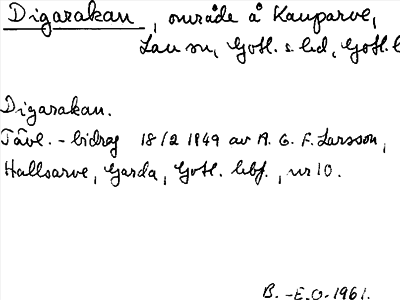 Digarakan, område å Kauparve,
Lau sn, Gotl. s. hd, Gotl. l
Digarakan.
Tävl.-bidrag 18/2 1949 av A. G. F. Larsson,
Hallsarve, Garda, Gotl. hbf., nr 10.
B. -E.O. 1961.